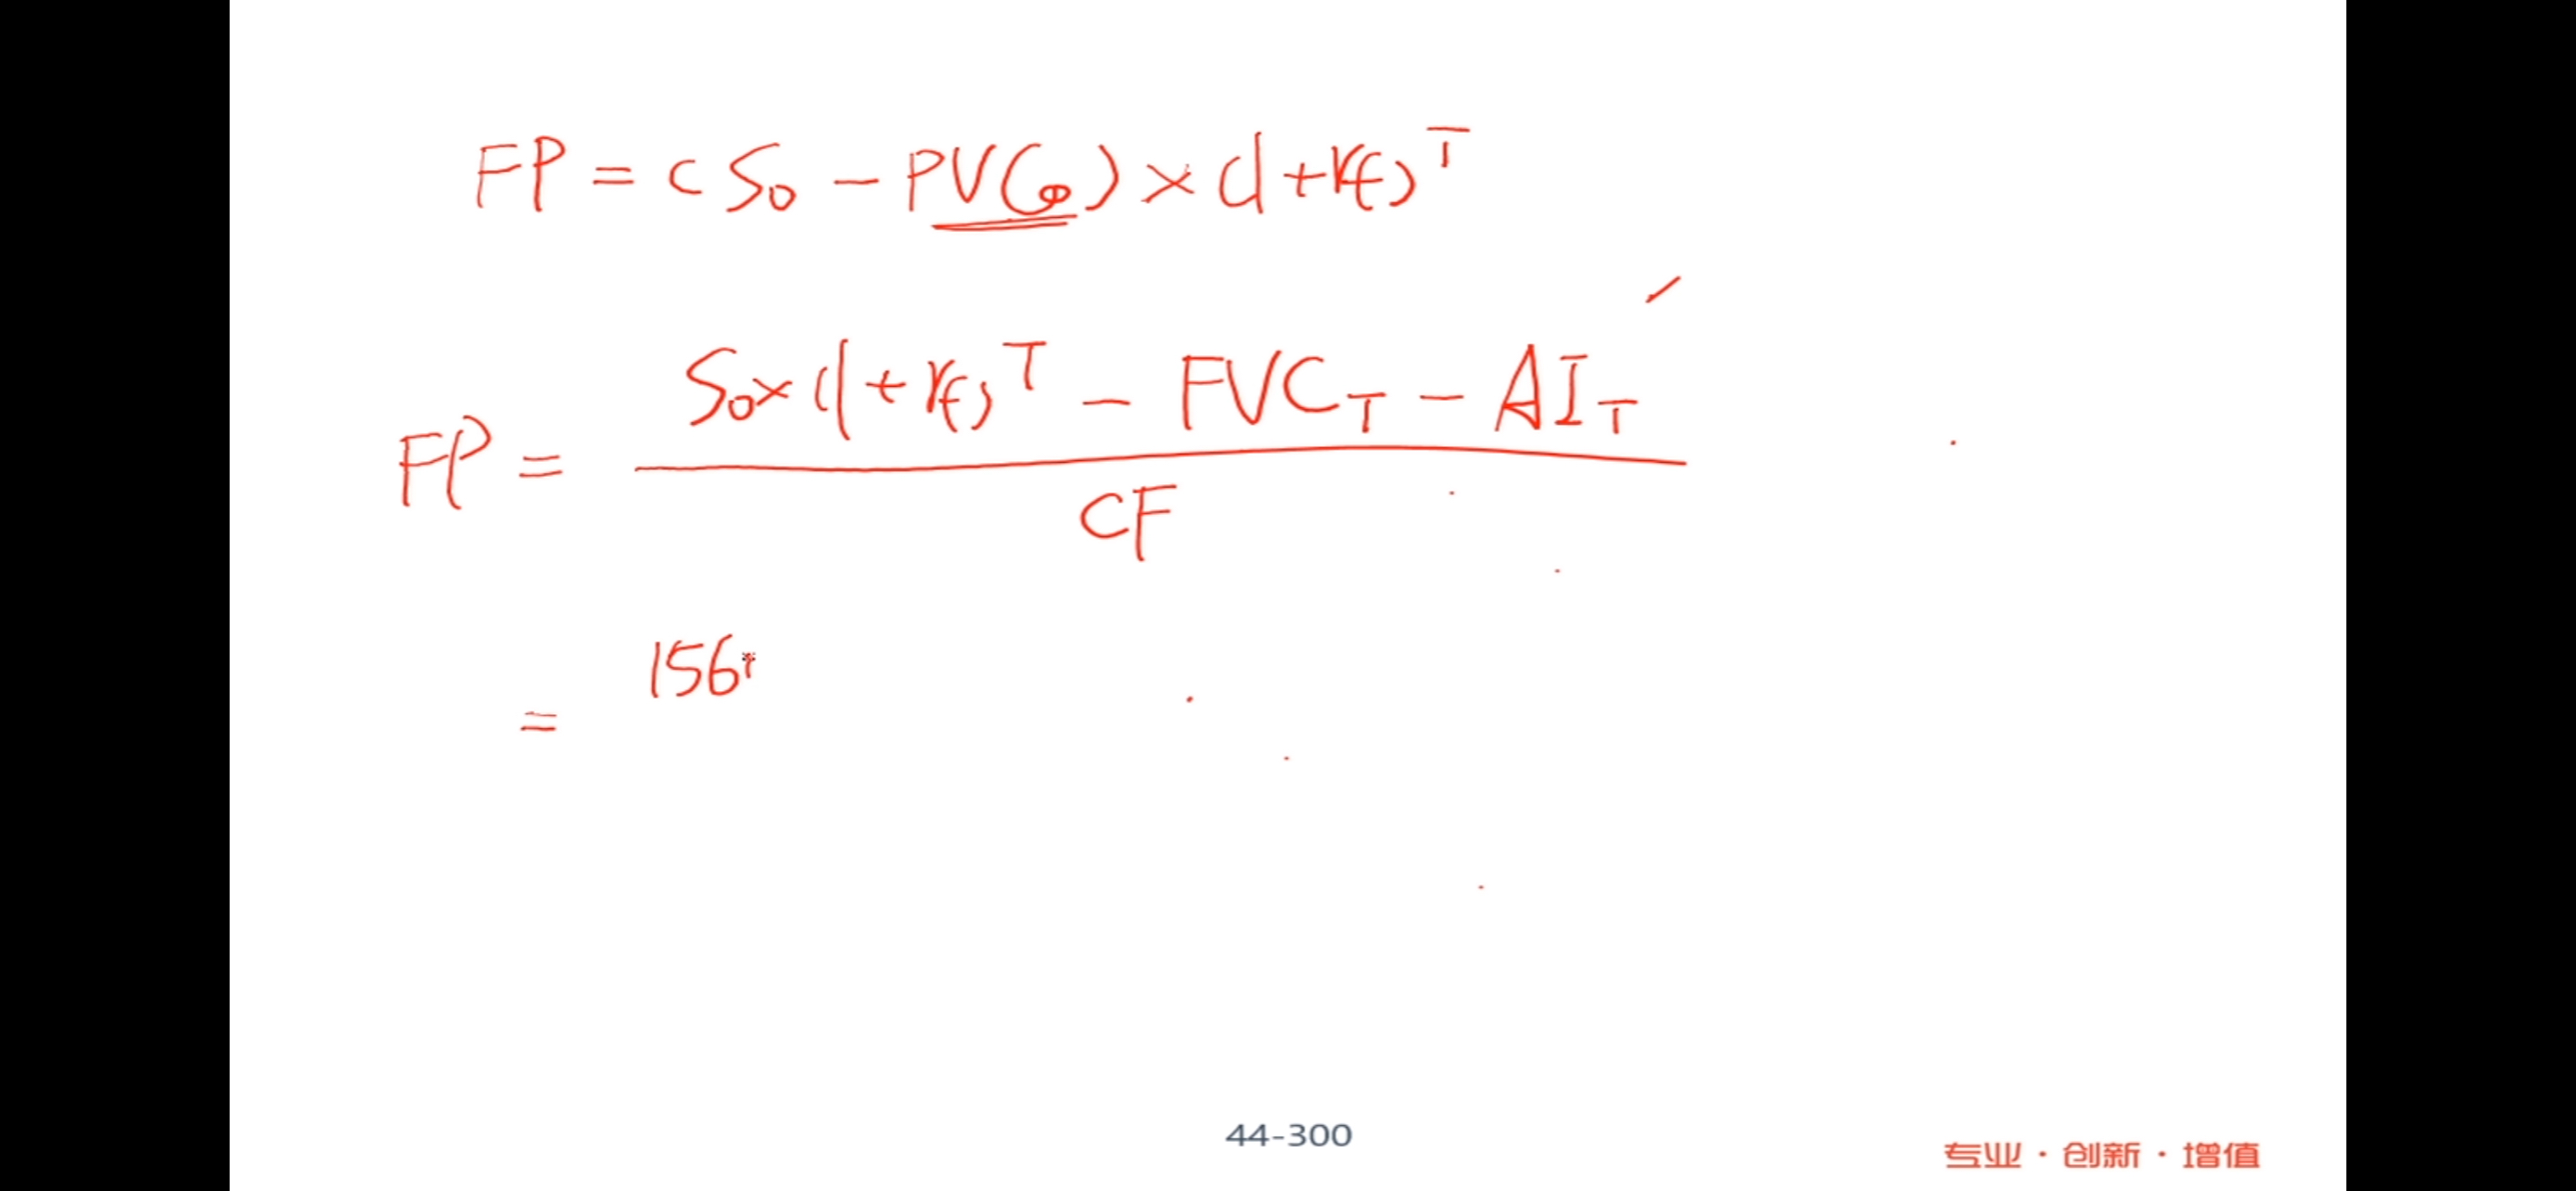 FP = (S₀ - PV(C₀) × (1+rf)ᵀ
S₀×(1+rf)ᵀ - FVC_T - AI_T
FP =
CF
156
=
44-300
专业·创新·增值